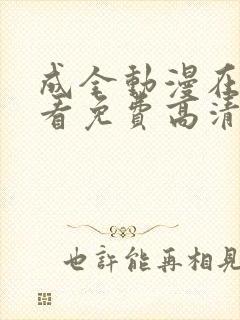 成全動漫在
看免費高清
也許能再相見